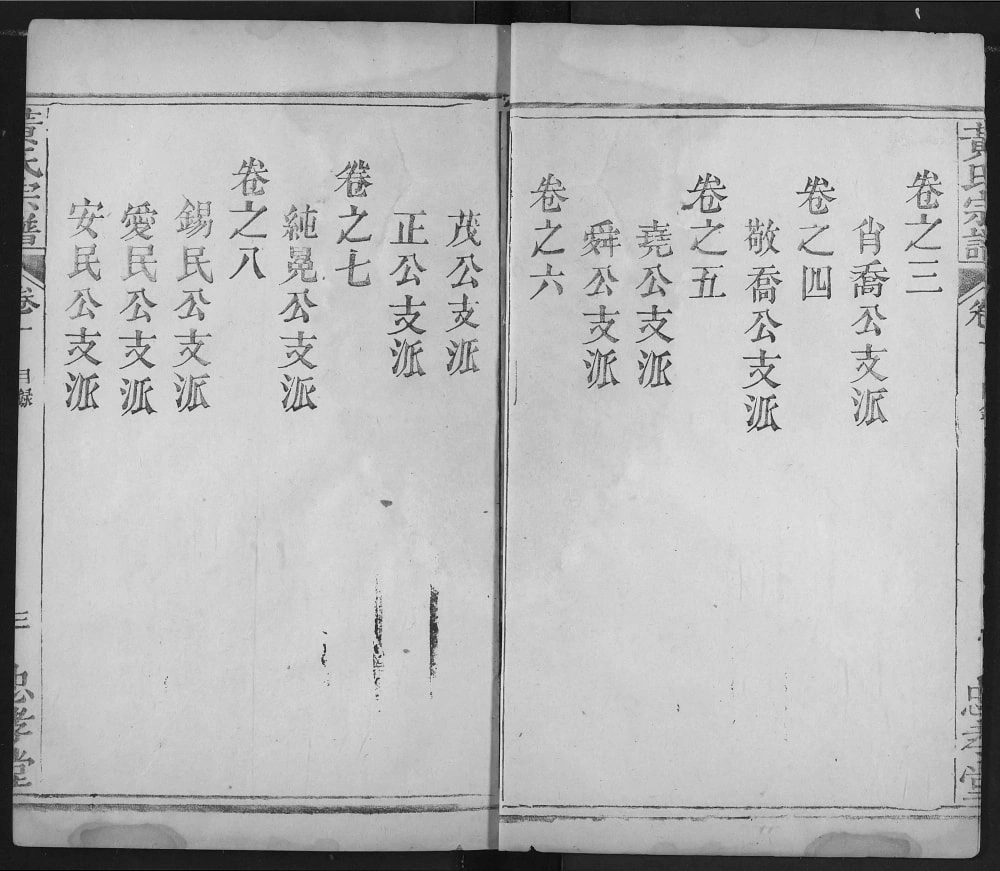 黃氏宗譜
卷之三
肖喬公支派
卷之四
敬喬公支派
卷之五
堯公支派
舜公支派
卷之六
忠孝堂
茂公支派
正公支派
卷之七
純冕公支派
卷之八
錫民公支派
愛民公支派
安民公支派
黃氏宗譜
卷一
目錄
三
忠孝堂